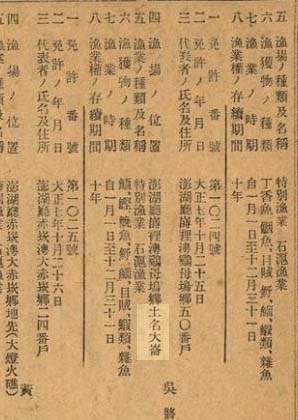 五 漁業ノ種類及名稱 特別漁業 石滬漁業
六 漁獲物ノ種類 丁香魚、鰮魚、目賊、鱙、鯔、蝦類、雜魚
七 漁業ノ時期 自一月一日至十二月三十一日
八 漁業權ノ存續期間 十年
一 免許番號 第一〇二四號
二 免許ノ年月日 大正七年十月二十五日
三 代表者ノ氏名及住所 澎湖廳嵵裡澳鷄母塢鄉五〇番戶 吳將
四 漁場ノ位置 澎湖廳嵵裡澳鷄母塢鄉土名大崙
五 漁業ノ種類及名稱 特別漁業 石滬漁業
六 漁獲物ノ種類 目賊、蝦類、雜魚
七 漁業ノ時期 自一月一日至十二月三十一日
八 漁業權ノ存續期間 十年
一 免許番號 第一〇二五號
二 免許ノ年月日 大正七年十月二十六日
三 代表者ノ氏名及住所 澎湖廳赤崁澳大赤崁鄉二四番戶 黃
四 漁場ノ位置 澎湖廳赤崁澳大赤崁鄉地先(大燈火礁)